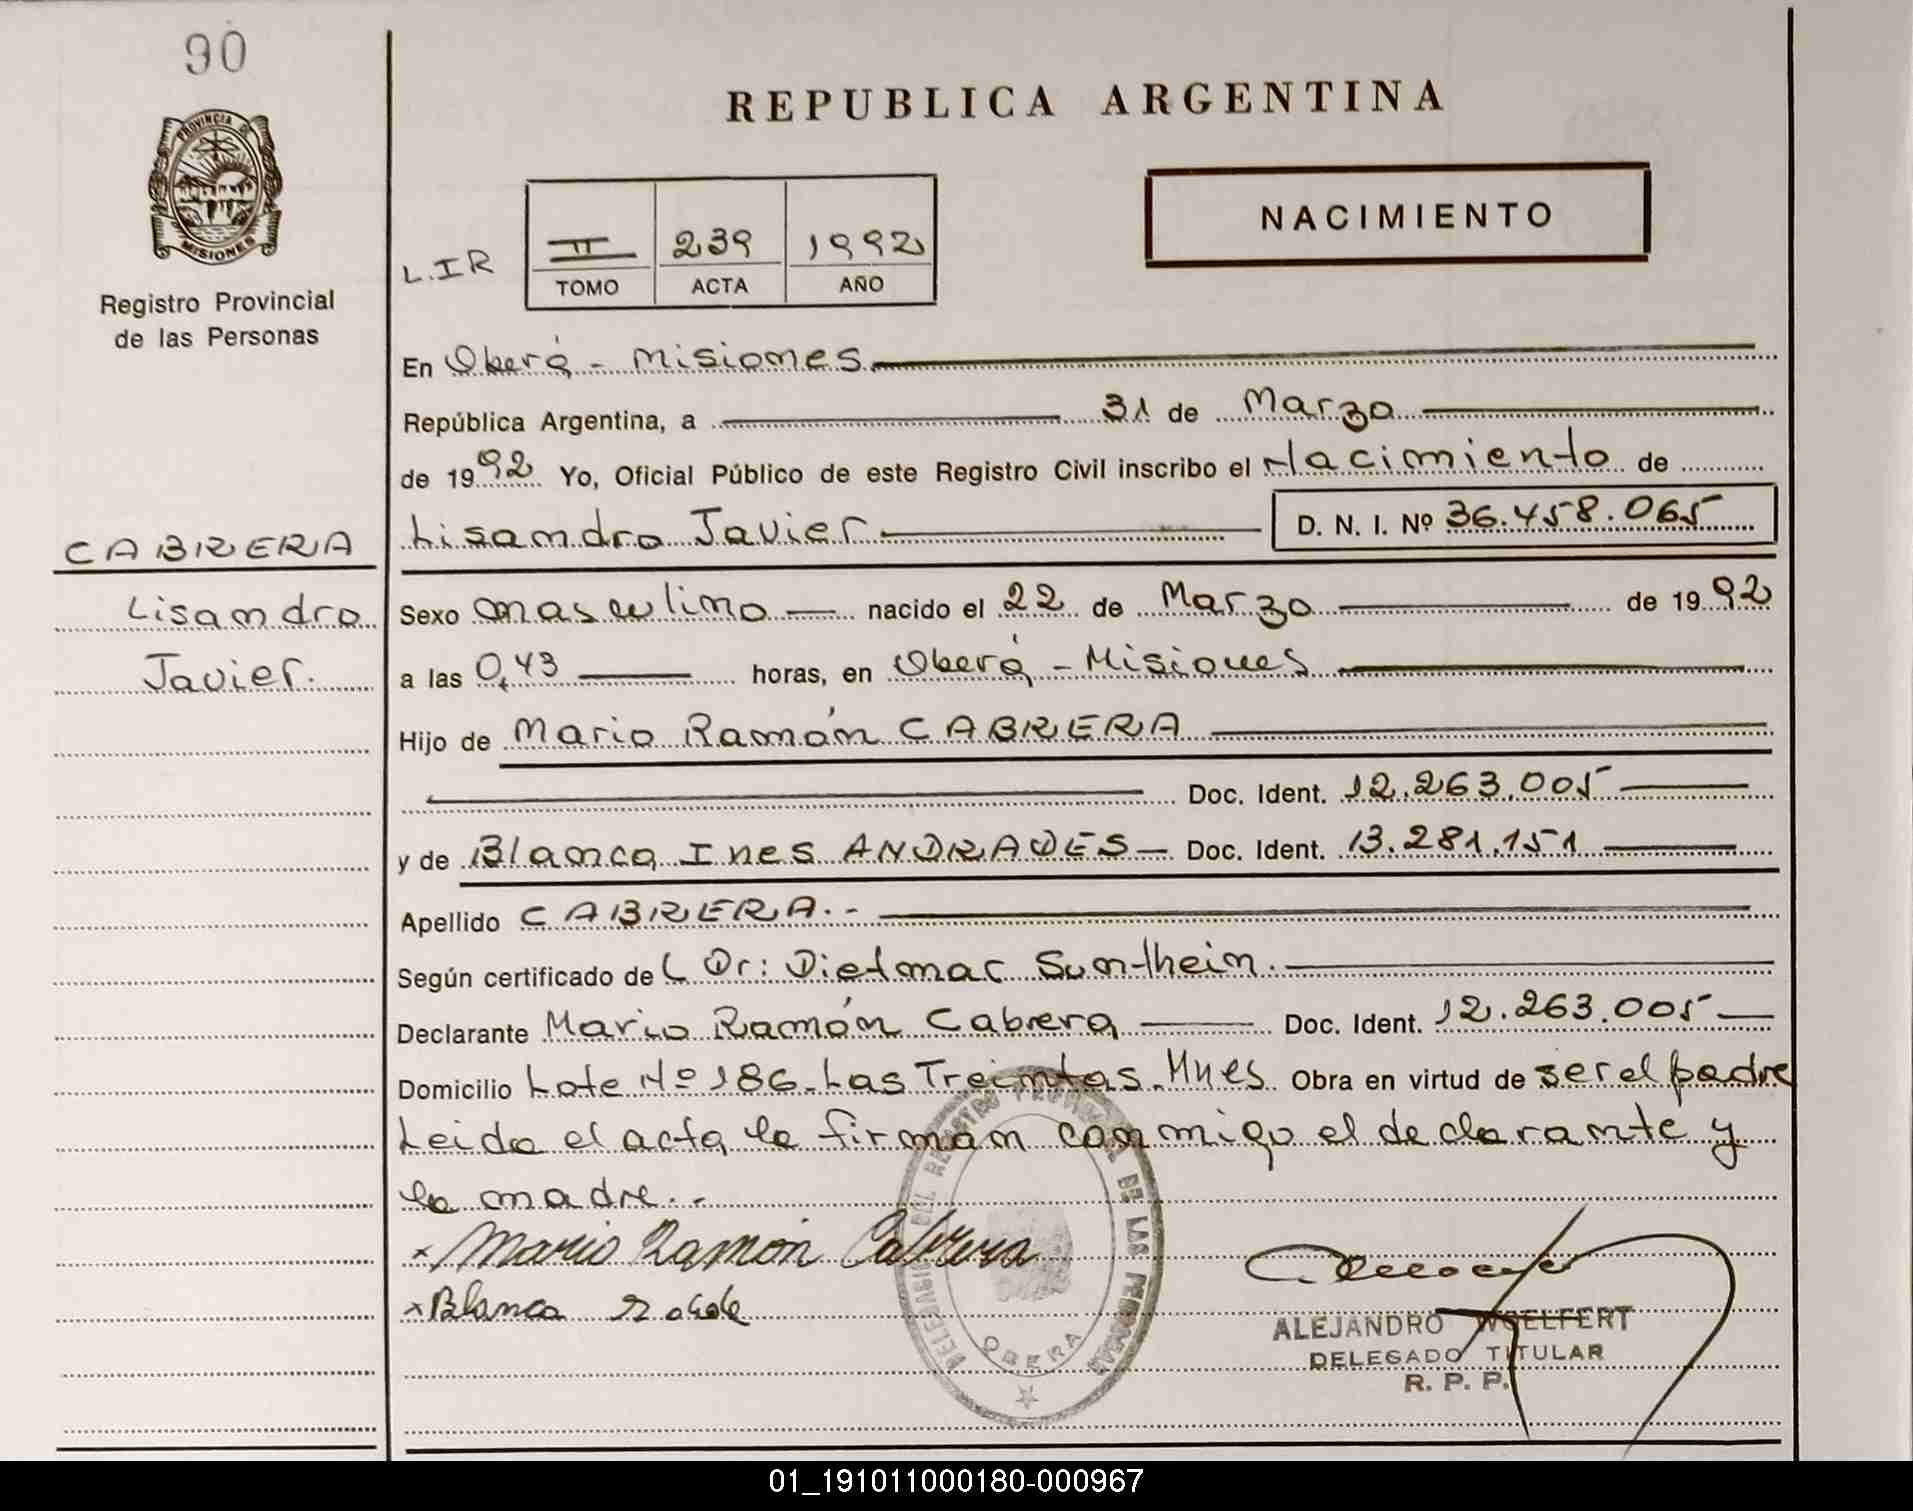 90
PROVINCIA DE
MISIONES
Registro Provincial
de las Personas
REPUBLICA ARGENTINA
NACIMIENTO
L.IR
II 239 1992
TOMO ACTA AÑO
En Oberá - Misiones
República Argentina, a 31 de Marzo
de 1992 Yo, Oficial Público de este Registro Civil inscribo el Nacimiento de
CABRERA
Lisandro
Javier.
Lisandro Javier D. N. I. Nº 36.458.065
Sexo masculino nacido el 22 de Marzo de 1992
a las 0,43 horas, en Oberá - Misiones
Hijo de Mario Ramón CABRERA
Doc. Ident. 12.263.005
y de Blanca Ines ANDRADES Doc. Ident. 13.281.151
Apellido CABRERA.-
Según certificado del Dr: Dietmar Sunthein.
Declarante Mario Ramón Cabrera Doc. Ident. 12.263.005
Domicilio Lote Nº 186-Las Treintas-Mnes Obra en virtud de ser el padre
Leida el acta la firman conmigo el declarante y
la madre.-
x Mario Ramón Cabrera
x Blanca
DELEGACION DEL REGISTRO PROVINCIAL DE LAS PERSONAS
OBERA
ALEJANDRO WOELFERT
DELEGADO TITULAR
R. P. P.
01_191011000180-000967